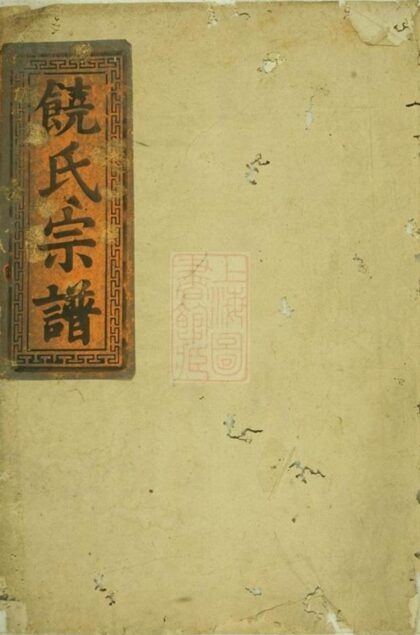 饒氏宗譜
上海圖
書館藏